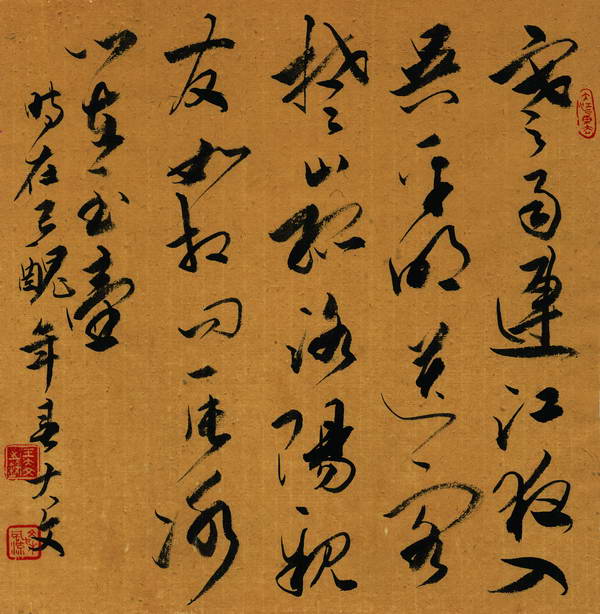 寒雨連江夜入
吳平明送客
楚山孤洛陽親
友如相問一片冰
心在玉壺
時在己醜年春大文